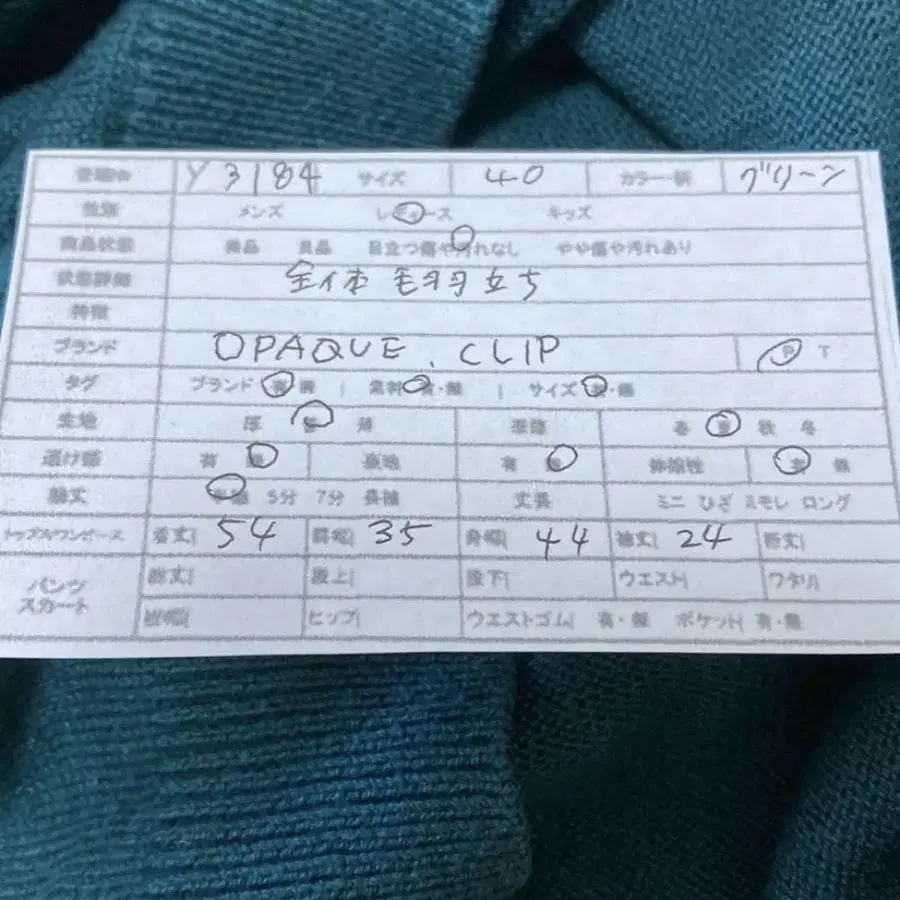 管理No Y3184 サイズ 40 カラー・柄 グリーン
性別 メンズ レディース キッズ
商品状態 美品 良品 目立つ傷や汚れなし やや傷や汚れあり
状態詳細 全体毛羽立ち
特徴
ブランド OPAQUE.CLIP P T
タグ ブランド 有 無 | 素材 有・無 | サイズ 有・無
生地 厚 普 薄 季節 春 夏 秋 冬
透け感 有 無 裏地 有 無 伸縮性 有 無
袖丈 半袖 5分 7分 長袖 丈長 ミニ ひざ ミモレ ロング
トップス/ワンピース 着丈 54 肩幅 35 身幅 44 袖丈 24 裄丈
パンツ スカート 総丈 股上 股下 ウエスト ワタリ
裾幅 ヒップ ウエストゴム 有・無 ポケット 有・無